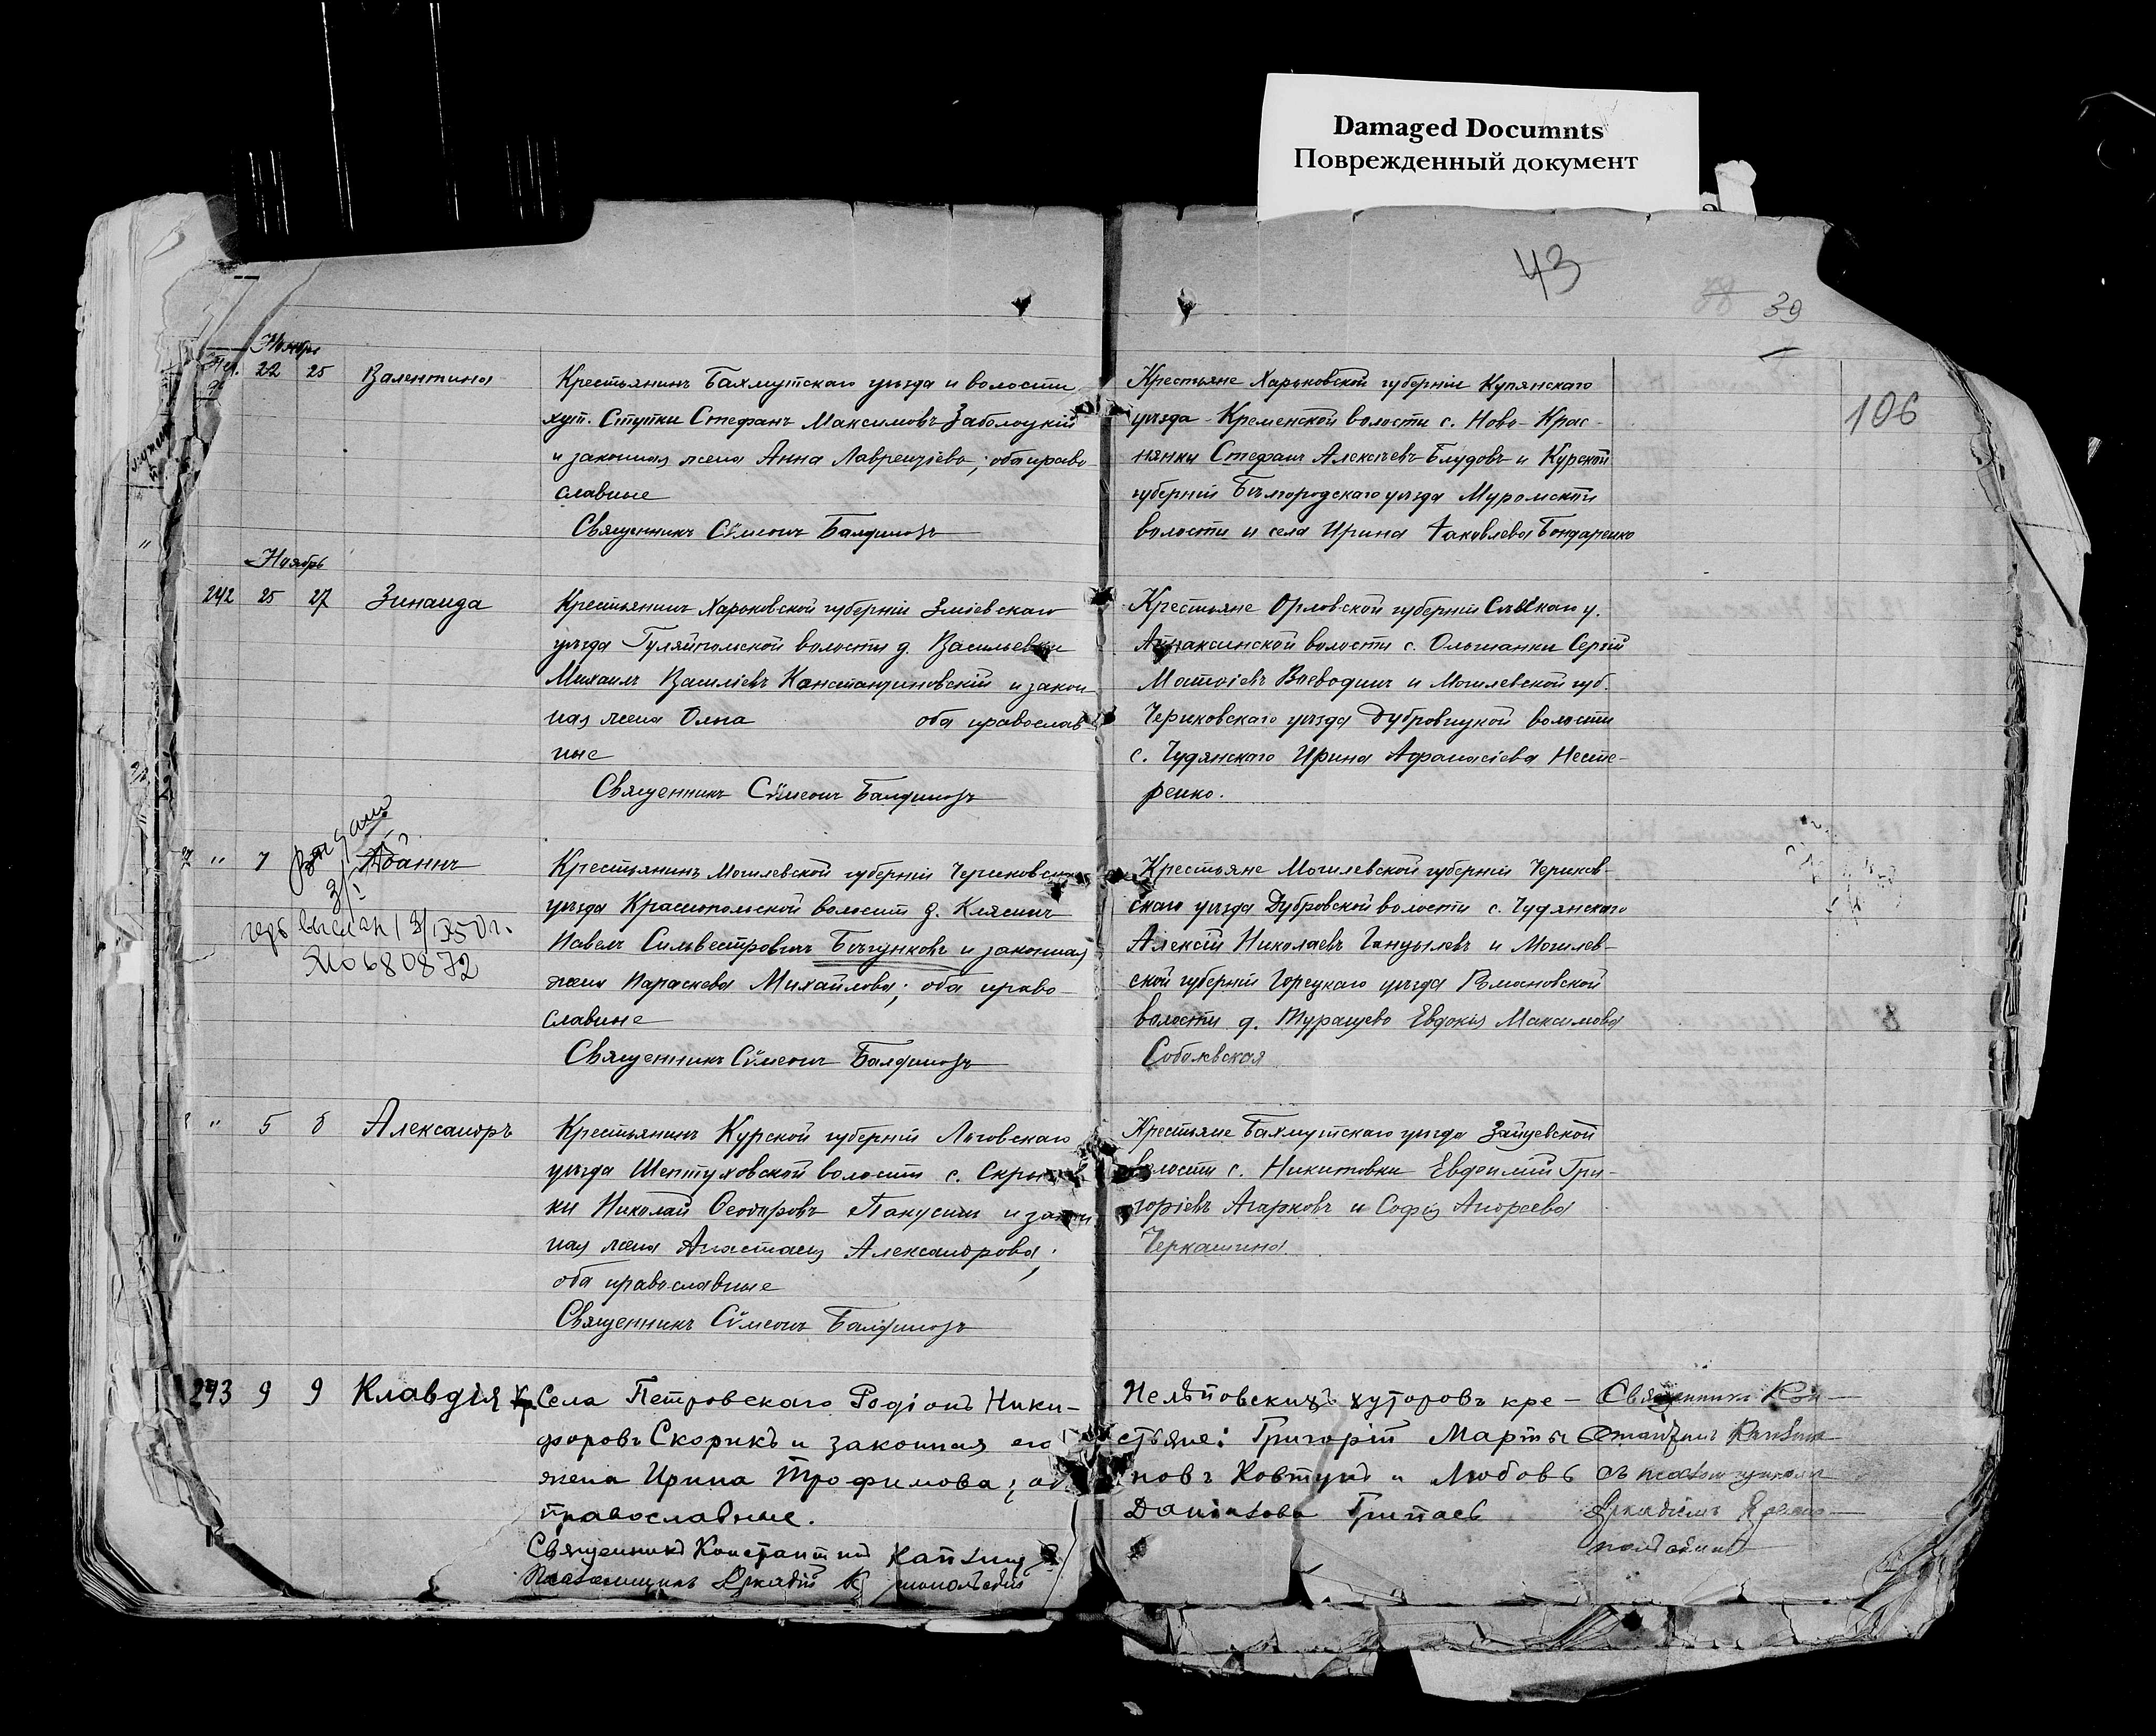 Damaged Documnts
Поврежденный документ
43
39
106
Ноябрь
22 25 Валентина
Крестьянинъ Бахмутскаго уѣзда и волости
хут. Ступки Стефанъ Максимовъ Заболоцкій
и законная жена Анна Лаврентіева; оба право
славные
Священникъ Сѵмеонъ
Крестьяне Харьковской губерніи Купянскаго
уѣзда Кременской волости с. Ново-Крас-
нянки Стефанъ Алексѣевъ Блудовъ и Курской
губерніи Бѣлгородскаго уѣзда Муромской
волости и села Ирина Іаковлева Бондаренко
Ноябрь
242 25 27 Зинаида
Крестьянинъ Харьковской губерніи Зміевскаго
уѣзда Гуляйпольской волости д. Васильевки
Михаилъ Василіевъ Константиновскій и закон
ная жена Ольга оба православ
ные
Священникъ Сѵмеонъ
Крестьяне Орловской губерніи у.
волости с. Ольшанки Сергій
Матѳіевъ Воеводинъ и Могилевской губ.
Чериковскаго уѣзда Дубровицкой волости
с. Чудянскаго Ирина Афанасіева Несте-
ренко.
" 1 Іоаннъ
680872
Крестьянинъ Могилевской губерніи Чериковскаго
уѣзда Краснопольской волости д. Клясинъ
Павелъ Сильвестровичъ Бѣгунковъ и законная
жена Параскева Михайлова; оба право
славные
Священникъ Сѵмеонъ
Крестьяне Могилевской губерніи Чериков-
скаго уѣзда Дубровской волости с. Чудянскаго
Алексій Николаевъ и Могилев-
ской губерніи Горецкаго уѣзда Романовской
волости д. Евдокія Максимова
Соболевская
" 5 6 Александръ
Крестьянинъ Курской губерніи Льговскаго
уѣзда Шептуховской волости с.
ки Николай Ѳеодоровъ и закон
ная жена Анастасія Александрова;
оба православные
Священникъ Сѵмеонъ
Крестьяне Бахмутскаго уѣзда Зайцевской
волости с. Никитовки Евфимій Гри-
горіевъ Агарковъ и Софія Андреева
Черкашина
243 9 9 Клавдія
Села Петровскаго Родіонъ Ники-
форовъ Скорикъ и законная его
жена Ирина Трофимова; об
православные.
Священникъ Константинъ
Псаломщикъ Аркадій
Нелѣповскихъ хуторовъ кре-
стьяне: Григорій Марты
новъ Ковтунъ и Любовь
Даніилова
Священникъ Кон-
стантинъ
съ псаломщикомъ
Аркадіемъ